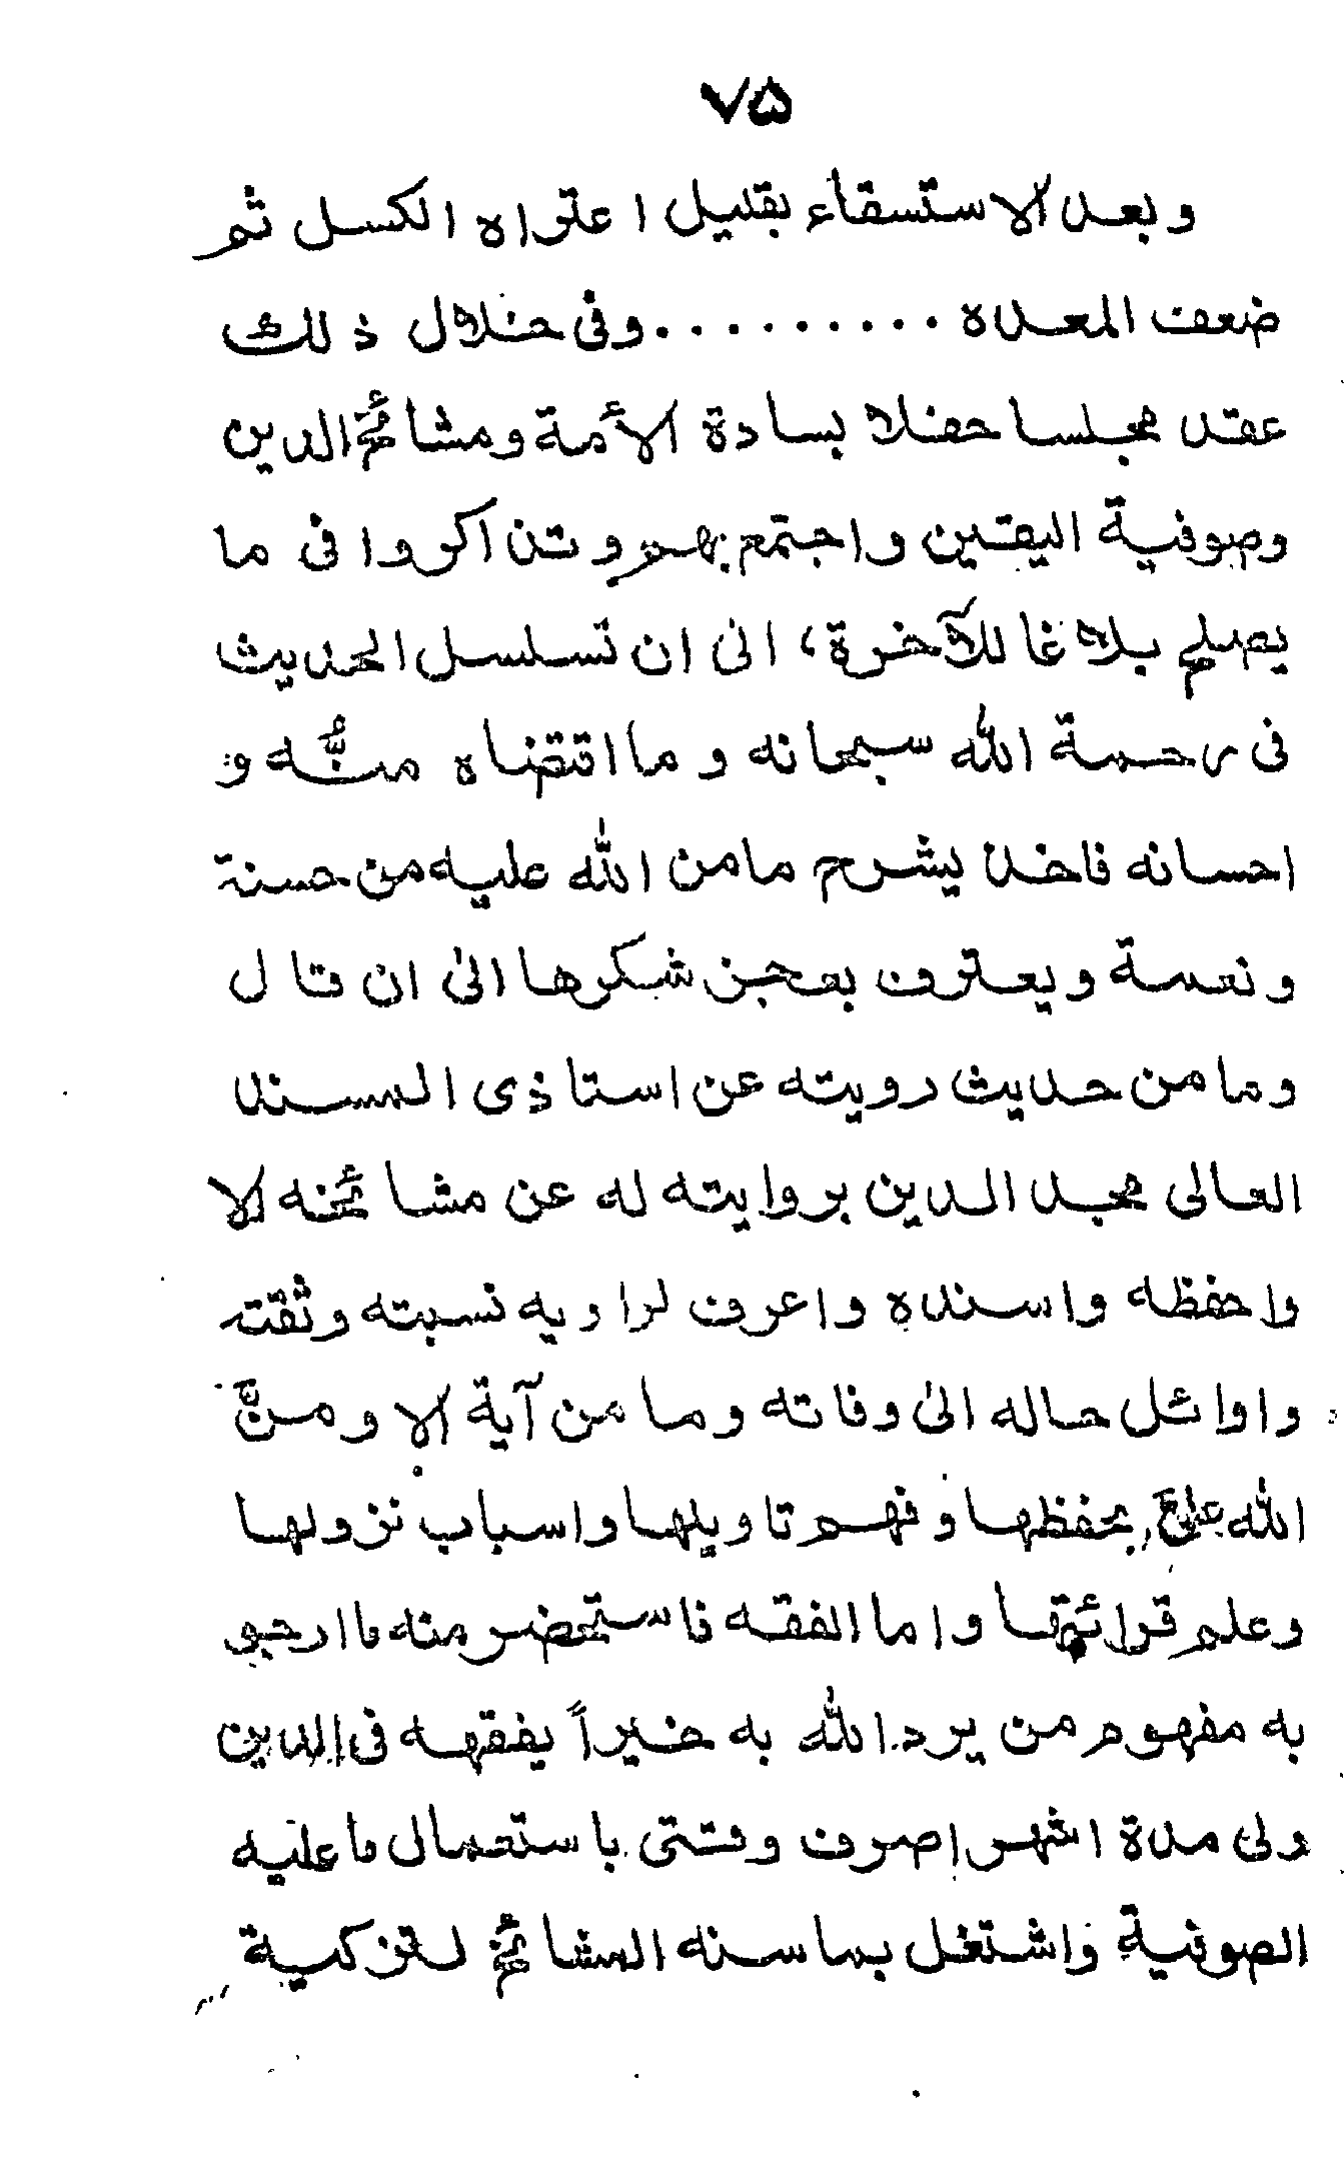 ۷۵
وبعد الاستسقاء بقليل اعتراه الكسل ثم
ضعف المعدة .......... وفى خلال ذلك
عقد مجلسا حفلا بسادة الأمة ومشائخ الدين
وصوفية اليقين واجتمع بهم و تذاكروا فى ما
يصلح بلاغا للآخرة، الىٰ ان تسلسل الحديث
فى رحمة اللّٰه سبحانه و ما اقتضاه منُّه و
احسانه فاخذ يشرح ما من اللّٰه عليه من حسنة
ونعمة ويعترف بعجز شكرها الىٰ ان قال
وما من حديث رويته عن استاذى المسند
العالى مجد الدين بروايته له عن مشائخه الا
واحفظه واسنده واعرف لراويه نسبته وثقته
واوائل حاله الىٰ وفاته وما من آية الا ومنَّ
اللّٰه علىَّ بحفظها و فهم تاويلها واسباب نزولها
وعلم قرائتها واما الفقه فاستحضر منه ما ارجو
به مفهوم من يرد اللّٰه به خيراً يفقهه فى الدين
ولى مدة اشهر اصرف وقتى باستعمال ما عليه
الصوفية واشتغل بما سنه المشائخ لتزكية